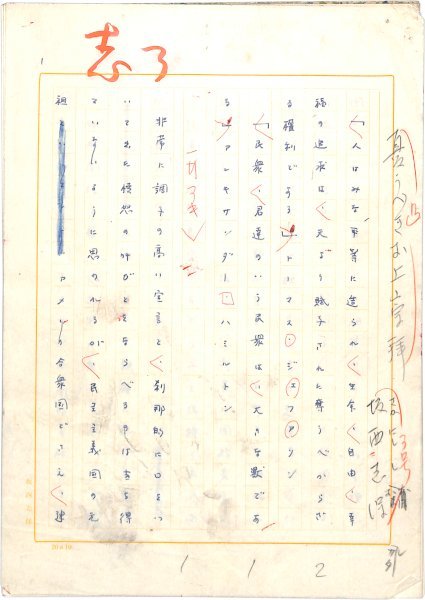 憂うべきお上崇拝
坂西志保
「人はみな平等に造られ、生命、自由、幸
福の追求は、天より賦予された奪うべからざ
る権利である」トーマス・ジェファソン
「民衆、君達のいう民衆は、大きな獣であ
る」アレキサンダー・ハミルトン
一行アキ
非常に調子の高い宣言と、刹那的に口をつ
いて出た憤怒の叫びとをならべるのは当を得
ていないように思われるが、民主主義国の元
祖 アメリカ合衆国でさえ、建
1 1 2